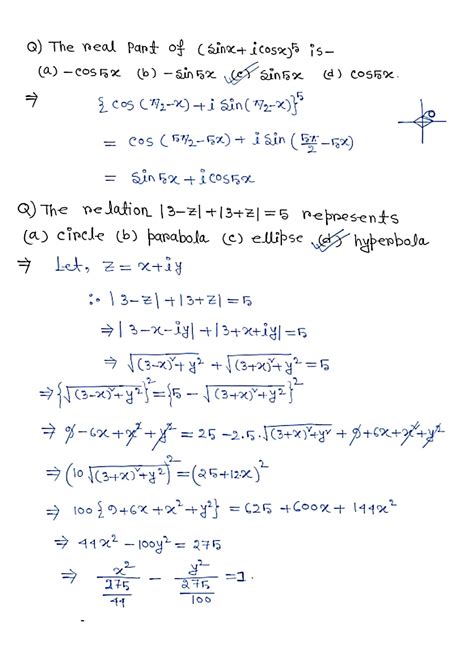 Q) The real part of (sinx + i cosx)⁵ is-
(a) -cos5x (b) -sin5x (c) sin5x (d) cos5x.
⇒ {cos(π/2-x)+i sin(π/2-x)}⁵
= cos(5π/2-5x)+i sin(5π/2-5x)
= sin5x + i cos5x
Q) The relation |3-z|+|3+z|=5 represents
(a) circle (b) parabola (c) ellipse (d) hyperbola
⇒ Let, z = x+iy
∴ |3-z|+|3+z|=5
⇒ |3-x-iy|+|3+x+iy|=5
⇒ √((3-x)²+y²) + √((3+x)²+y²) = 5
⇒ {√((3-x)²+y²)}² = {5 - √((3+x)²+y²)}²
⇒ 9-6x+x²+y² = 25-2.5.√((3+x)²+y²) + 9+6x+x²+y²
⇒ (10√((3+x)²+y²))² = (25+12x)²
⇒ 100{9+6x+x²+y²} = 625+600x+144x²
⇒ 44x² - 100y² = 275
⇒ x²/(275/44) - y²/(275/100) = 1.